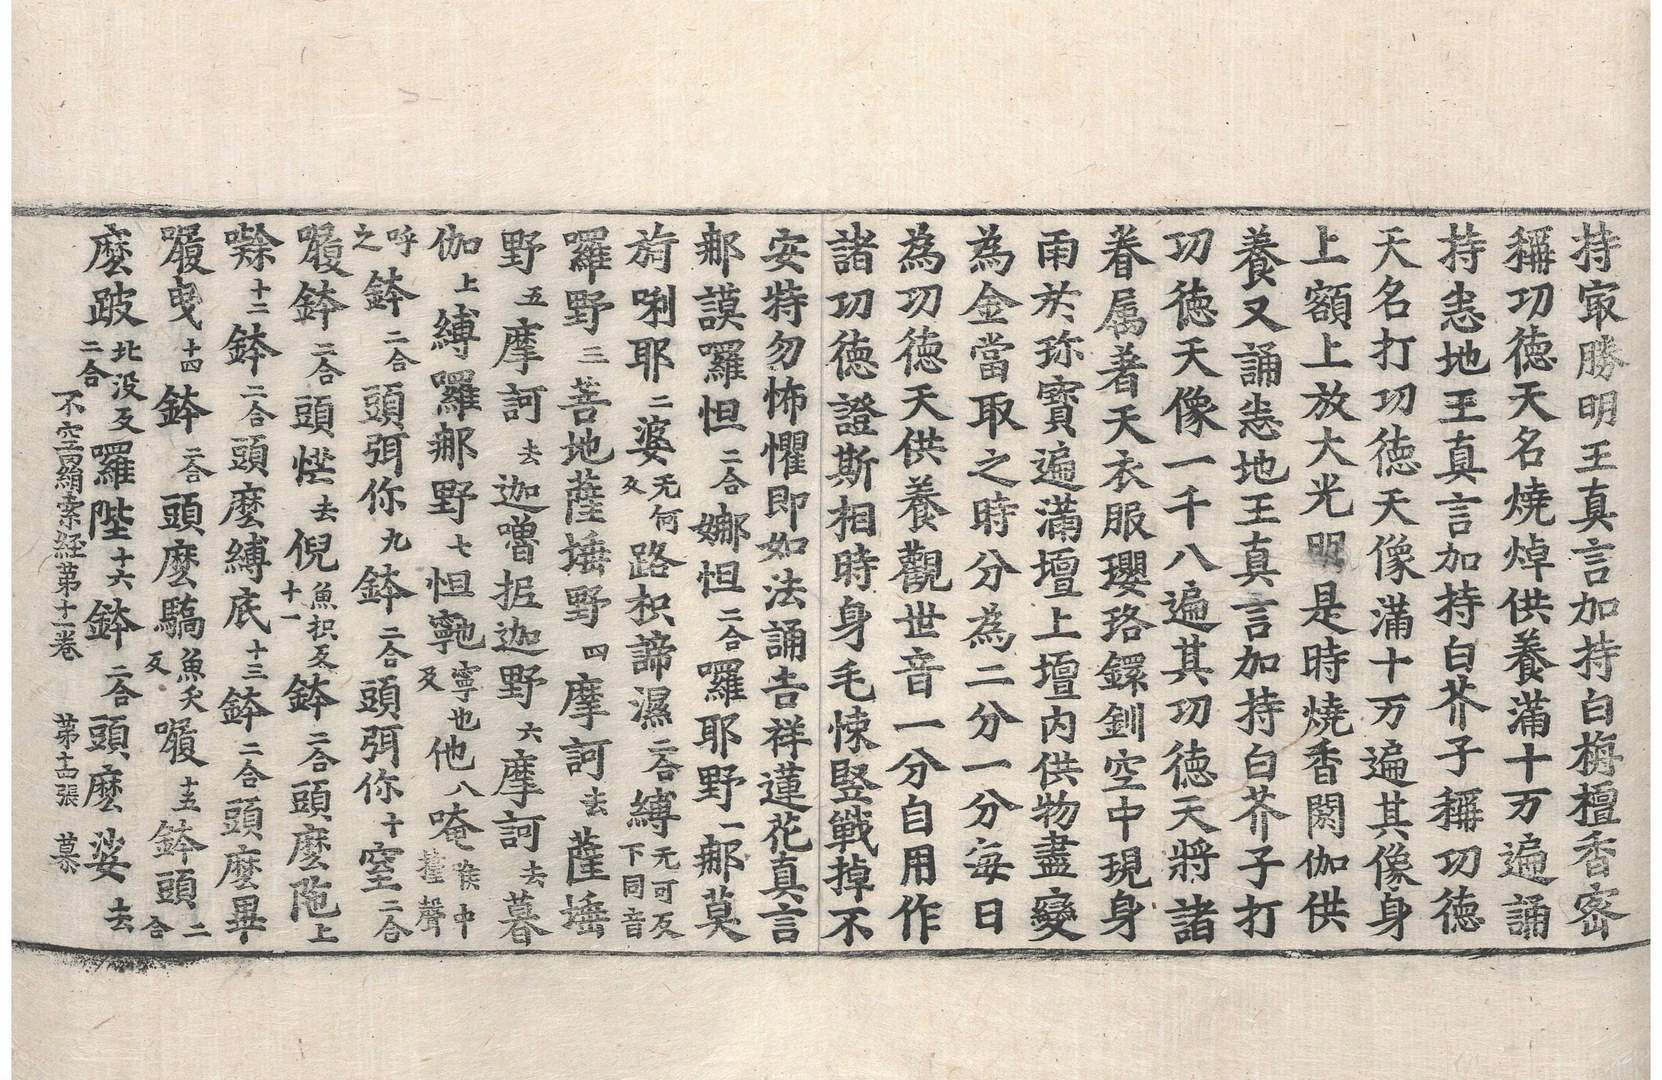 持㝡勝明王真言加持白栴檀香密
稱功德天名燒焯供養滿十万遍誦
持恚地王真言加持白芥子稱功德
天名打功德天像滿十万遍其像身
上額上放大光明是時燒香閼伽供
養又誦恚地王真言加持白芥子打
功德天像一千八遍其功德天將諸
眷属著天衣服瓔珞鐶釧空中現身
雨於珎寶遍滿壇上壇内供物盡變
為金當取之時分為二分一分每日
為功德天供養觀世音一分自用作
諸功德證斯相時身毛悚竪戰掉不
安特勿怖懼即如法誦吉祥蓮花真言
娜謨羅怛二合娜怛二合羅耶野一娜莫
旖唎耶二婆无何反路枳諦濕二合縛无可反下同音
羅野三菩地薩埵野四摩訶去薩埵
野五摩訶去迦嚕抳迦野六摩訶去暮
伽上縛羅娜野七怛寧也反他八唵喉中擡聲
呼之鉢二合頭弭你九鉢二合頭弭你十窒二合
囇鉢二合頭𢙉去倪魚枳反十一鉢二合頭麼陁上
㘑十二鉢二合頭麼縛底十三鉢二合頭麼畢
囇曳十四鉢二合頭麼驕魚矢反囇十五鉢二合頭
麼跛北没反二合囉陛十六鉢二合頭麼娑去
不空羂索経苐十一卷　苐十四張　慕